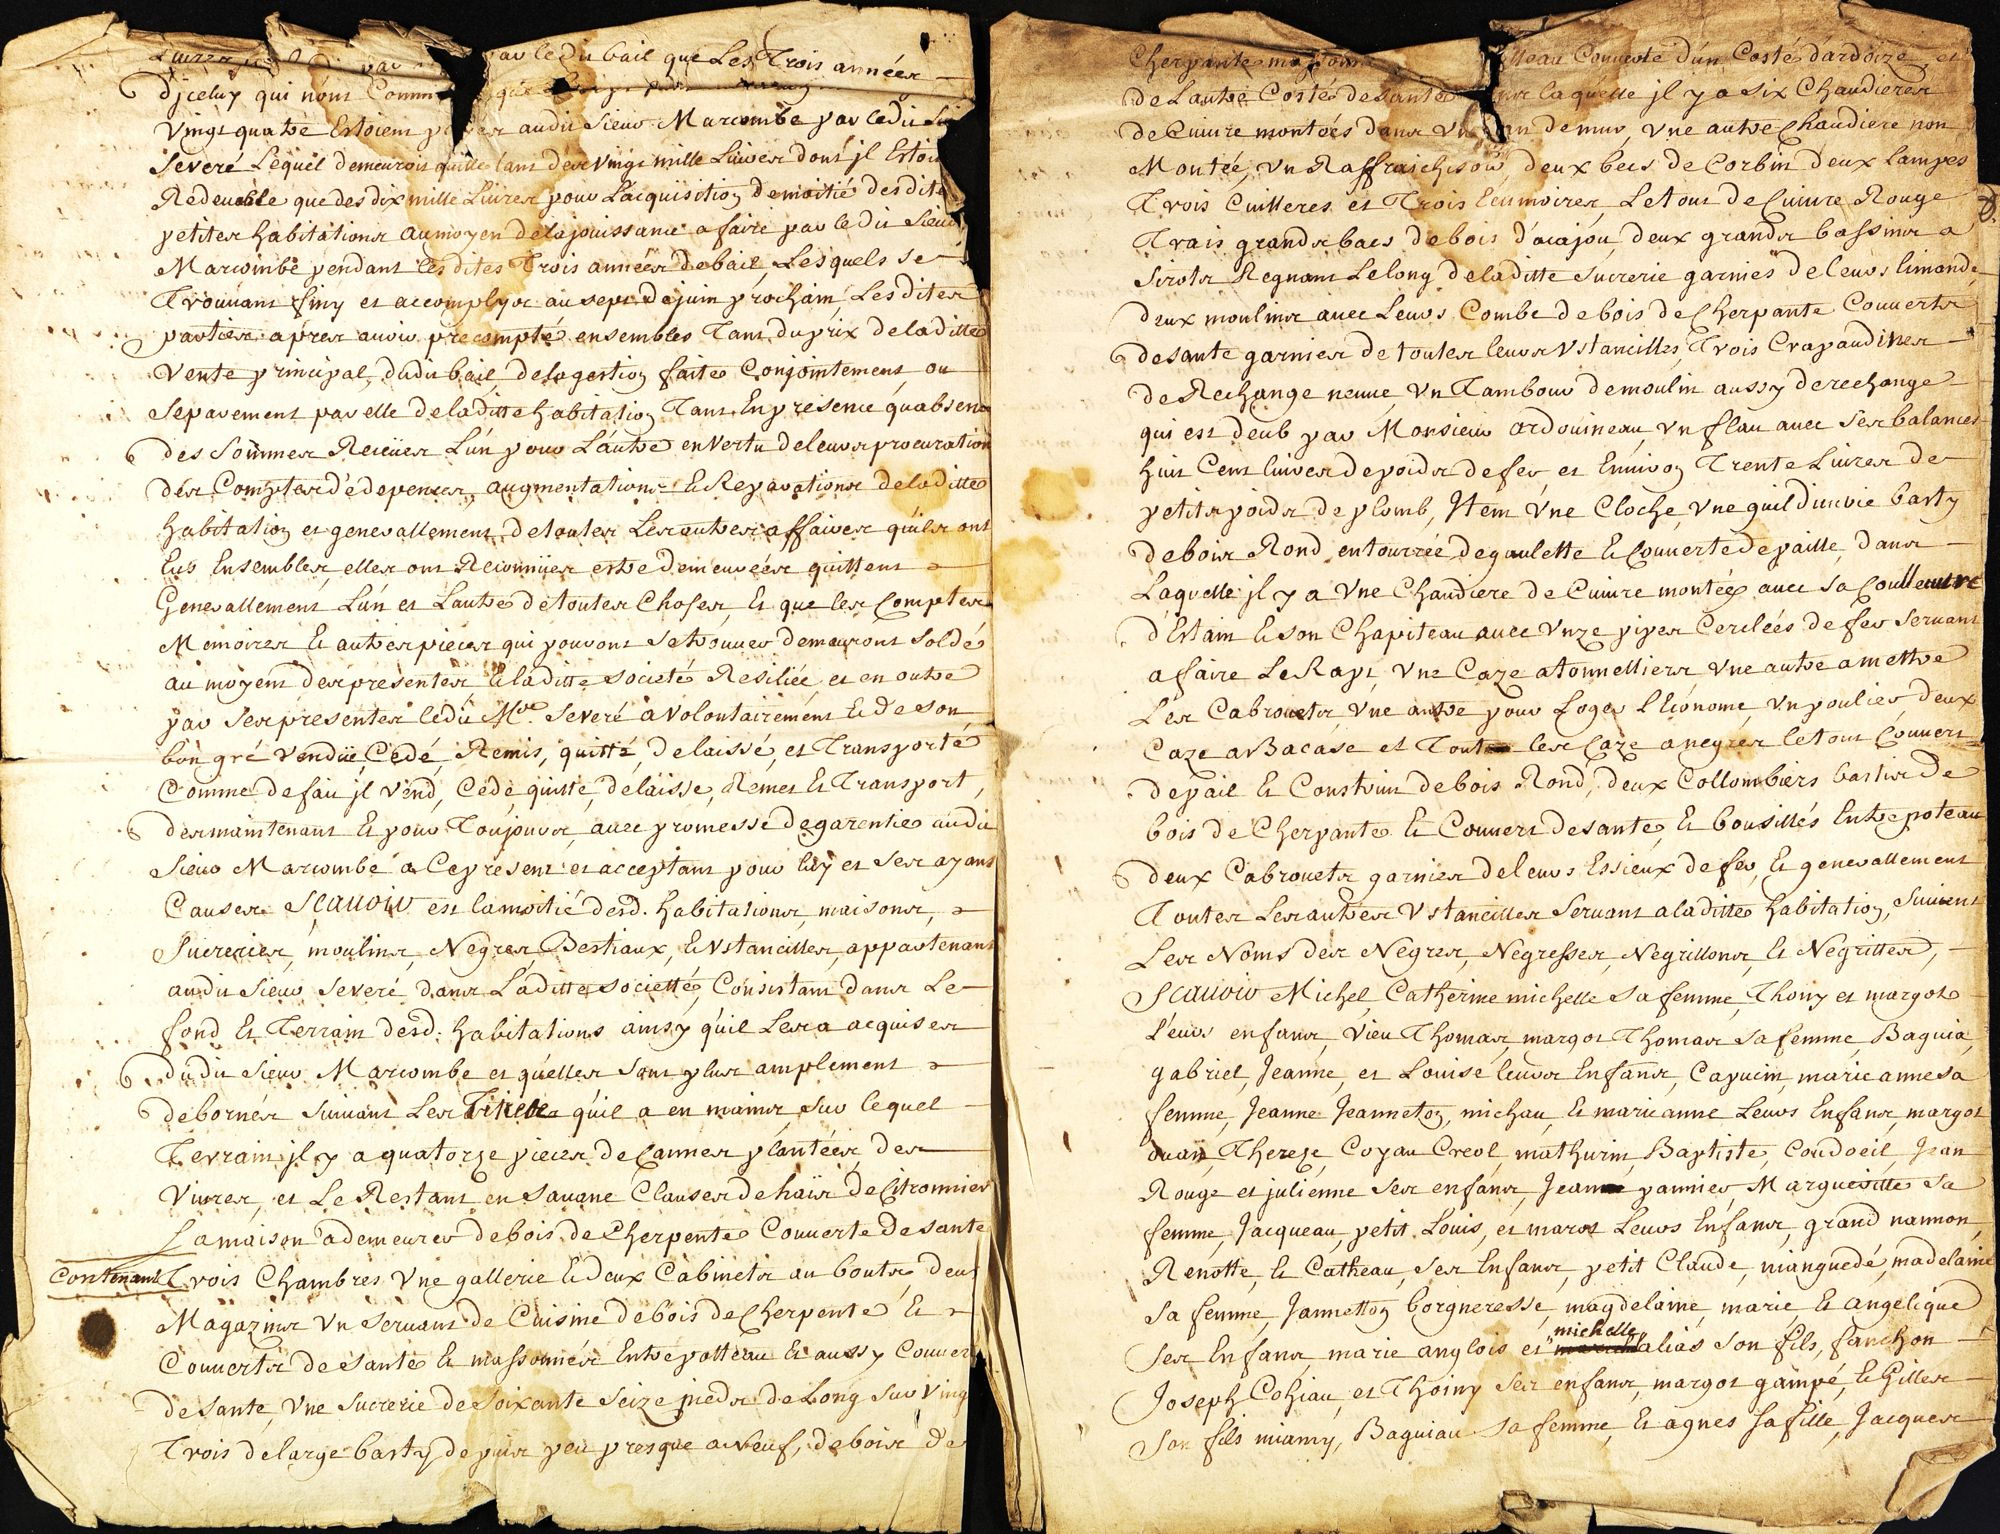 par ledit bail que Les Trois années
Djceluy qui nont
Vingt quatre Estoient payer audit Sieur Marcombe par ledit Sieur
Severé Lequel demeuroit quitte tant des vingt mille Livres dont jl Estoit
Redevable que des dix mille Livres pour Lacquisition de moitié desdites
petites habitations au moyen de la jouissance a faire par le dit Sieur
Marcombe pendant les dites Trois années de bail, Lesquels se
Trouvant finy et accomplyes au sept de juin prochain, Les dites
parties apres avoir precompté ensembles Tant du prix de la ditte
Vente principal, dudit bail, de la gestion faite Conjointement ou
Separement par elle de la ditte habitation Tant En presence quabsence
des Sommes Receües Lún pour Lautre en Vertu de leurs procuration
des Comptes de depences, augmentations & Reparations de la ditte
habitation et generallement de toutes Les autres affaires quils ont
Eus Ensembles, elles ont Reconnües estre demeurées quittent
Generallement Lún et Lautre de toutes Choses, Et que les Comptes
Memoires & autres pieces qui pouront se trouver demeuront soldé
au moyent des presentes, & la ditte societé Resiliée, et en outre
par ses presentes ledit Mre. Severé a volontairement & de son
bon gré Vendüe, Cedé, Remis, quitté, delaissé, et Transporté
Comme de fait jl vend, Cede, quitte, delaisse, Remet Et Transport,
des maintenant Et pour Toujours, avec promesse de garentie audit
Sieur Marcombe a Ce present et acceptant pour luy et ses ayans
Causes Scauoir est la moitié desd. habitations, maisons,
Sucreries, moulins, Negres Bestiaux, & Vstancilles, appartenant
audit Sieur Severé dans Laditte societté, Consistant dans Le
fond Et Terrain desd: habitations ainsy qúil Les a acquises
dudit Sieur Marcombe et qúelles sont plus amplement
debornés suivant Les Titres qúil a en mains, sur lequel
Terrain jl y a quatorze pieces de Cannes plantées, des
Vivres, et Le Restant en Savane Clauses de haïs de Citronnier
La maison a demeurer de bois de Cherpente Couverte de sante
Contenant Trois Chambres Vne gallerie & deux Cabinets au bouts, deux
Magazins Vn servant de Cuisine de bois de Cherpente &
Couverts de sante & massonnés Entre potteau & aussy Couvert
de sante, Vne Sucrerie de soixante Seize pieds de Long sur Vingt
Trois de large basty depuis peu presque a Neuf, de bois de
Cherpante potteau Couverte d'un Costé dardoize, et
de Lautre Costé de sante dans laquelle jl y a six Chaudieres
de Cuivre montées dans de mur, vne autre Chaudiere non
Montée, vn Raffraichisoir, deux becs de Corbin deux lampes
Trois Cuilleres et Trois Ecumoires, Le tout de Cuivre Rouge
Trais grands bacs de bois d'acajou, deux grands bassins a
Sirots Regnant Le long de laditte sucrerie garnies de leurs limande
deux moulins avec Leurs Combe de bois de Cherpante Couverts
de sante garnies de toutes leurs Vstancilles, Trois Crapaudines
de Rechange neuve, vn Tambour de moulin aussy de rechange
qui est deub par Monsieur Ardouineau, vn flau avec ses balances
huit Cent livres de poids de fer, et Environ Trente Livres de
petits poids de plomb, Jtem Vne Cloche, vne guildiuerie basty
de bois Rond, entourrée de gaulette & Couverte de paille, dans
Laquelle jl y a Vne Chaudiere de Cuivre montée avec sa Coulleuvre
d'Estain & son Chapiteau avec vnze pipes Cerclées de fer servant
a faire Le Rapt, Vne Caze a tonnelliers, vne autre a mettre
Les Cabrouets, Vne autre pour Loger l'Econome, Vn poulier, deux
Caze a Bacase et Tout les Caze a negres le tout Couvert
de pail & Construit de bois Rond, deux Collombiers bastis de
bois de Cherpante & Couvert de sante, & bousillés Entre poteau
deux Cabrouets garnies de leurs Essieux de fer, & generallement
Toutes Les autres Vstancilles servant a laditte habitation, suivent
Les Noms des Negres, Negresses, Negrillons, & Negrittes,
Scauoir Michel, Catherine michelle sa femme, Thony et margot
leurs enfans, Vieu Thomas, margot Thomas sa femme, Baguia,
gabriel, Jeanne, et Louise leurs Enfans, Capucin, marie anne sa
femme, Jeanne Jeanneton, michau, & marie anne Leurs Enfans, margot
ouan, Therese, Coyau Creol, mathurin, Baptiste, Coudoeil, Jean
Rouge et julienne ses enfans, Jean pannier, Margueritte sa
femme, Jacqueau, petit Louis, et marot Leurs Enfans, grand nannon,
Renotte, & Catheau, ses Enfans, petit Claude, nianguedé, madelaine
sa femme, Jannetton borgneresse, magdelaine, marie, & angelique
ses Enfans, marie anglois et michelle alias son fils, fanchon
Joseph Cohiau, et Thoiny ses enfans, margot gampé, & Gilles
son fils miamy, Baguiau sa femme, & agnes sa fille, Jacques